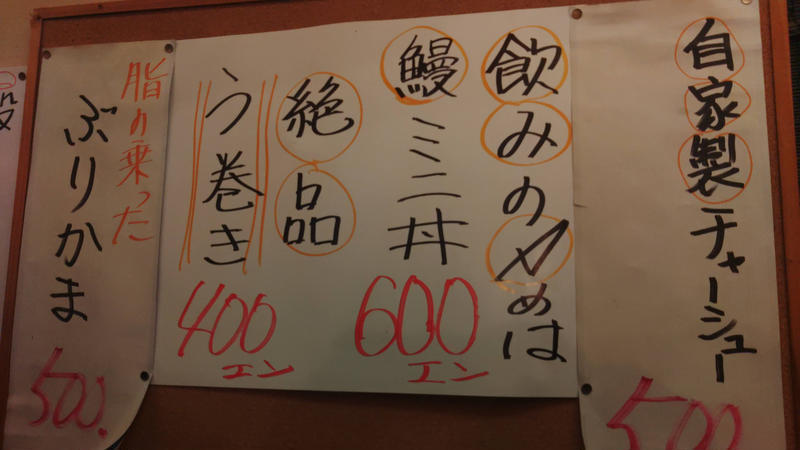 自家製チャーシュー
500
飲みの〆めは
鰻ミニ丼
600
エン
絶品
う巻き
400
エン
脂の乗った
ぶりかま
500.